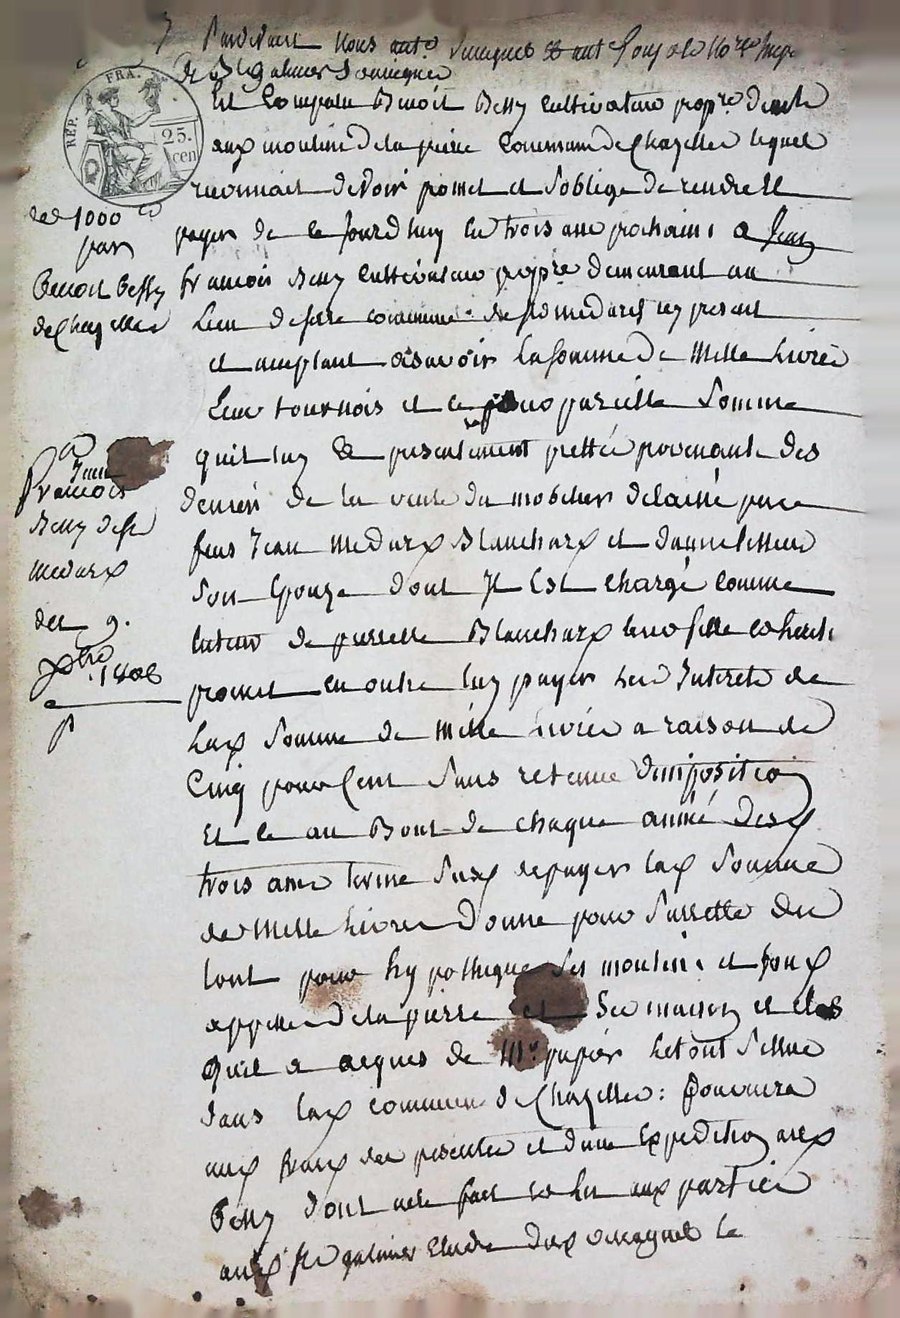 Pardevant nous
de St galmier soussigné
Est Comparu Benoit Bessy Cultivateur propre dt
aux moulin de la pierre Commune de Chazelle lequel
reconnait devoir promet et s'oblige de rendre et
payer de ce Jourd'huy en trois ans prochains a Jean
françois Bessy Cultivateur propre demeurant au
Lieu de commune de st medard icy present
et acceptant asavoir la somme de Mille Livres
tournois et ce pour pareille Somme
quil luy a presentement pretté provenant des
deniers de la vente du mobelier delaissé par
feus Jean Medard Blanchard et
Son Epouze dont Il Est Chargé Comme
tuteur de pierrette Blanchard leur fille
promet en outre luy payer les Interets de
lad Somme de Mille Livres a raison de
Cinq pour Cent Sans retenue d'imposition
Et ce au Bout de chaque année des d
trois ans terme de payer lad Somme
de Mille Livres Donne pour Surette du
tout pour hypotheque Ses moulins et fond
appellé de la pierre et Ses maison et clos
quil a acquis de Mr papier le tout Situé
dans lad commune de Chazelle : fournira
aux fraix des presentes et d'une Expedition aud
Bessy dont acte fait et lu aux parties
a St galmier Etude le
REP. FRA.
25.
cen
de 1000
par
Benoit Bessy
de Chazelles
a
Jean
François
Bessy de st
Medard
du 9.
Xbre 1808